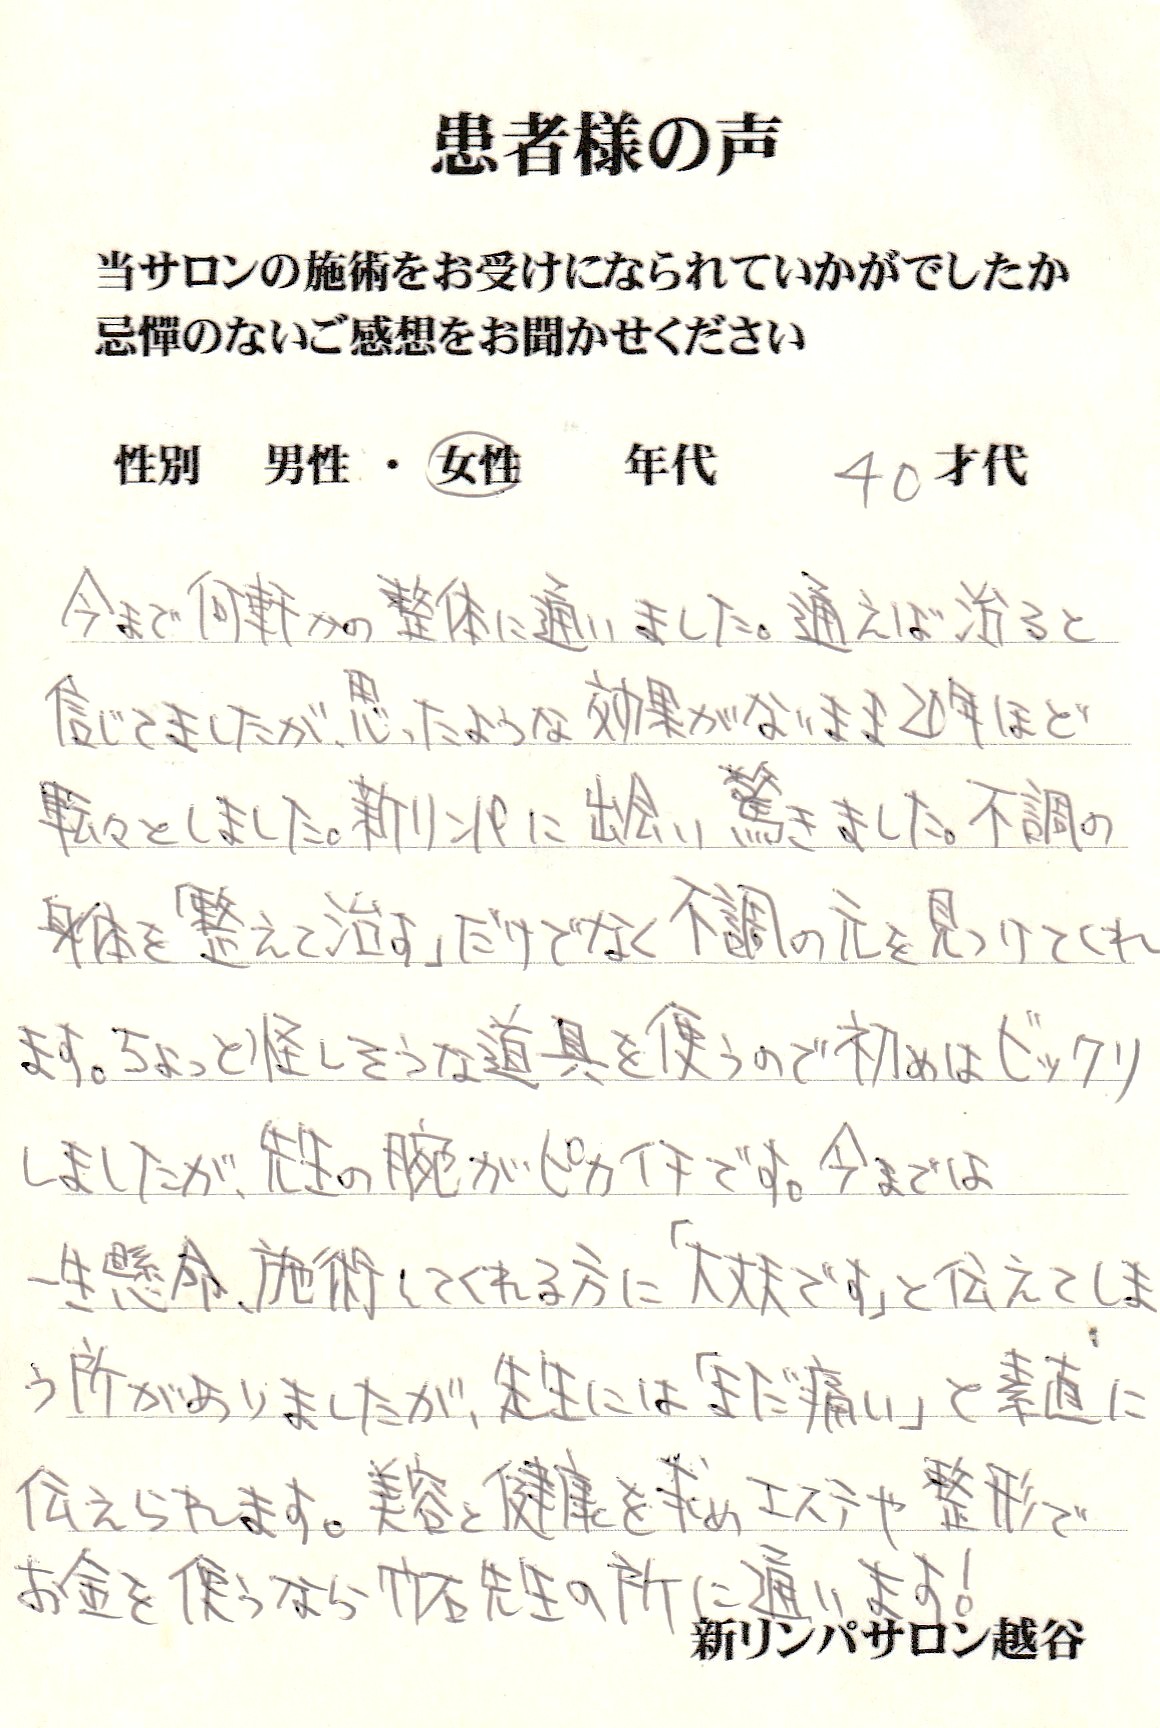 患者様の声
当サロンの施術をお受けになられていかがでしたか
忌憚のないご感想をお聞かせください
性別 男性・女性 年代 40才代
今まで何軒かの整体に通いました。通えば治ると
信じてましたが、思ったような効果がないまま20年ほど
転々としました。新リンパに出会い驚きました。不調の
身体を「整えて治す」だけでなく不調の元を見つけてくれ
ます。ちょっと怪しそうな道具を使うので初めはビックリ
しましたが、先生の腕がピカイチです。今までは
一生懸命、施術してくれる方に「大丈夫です」と伝えてしま
う所がありましたが、先生には「まだ痛い」と素直に
伝えられます。美容と健康を求めエステや整形で
お金を使うなら竹石先生の所に通います!
新リンパサロン越谷